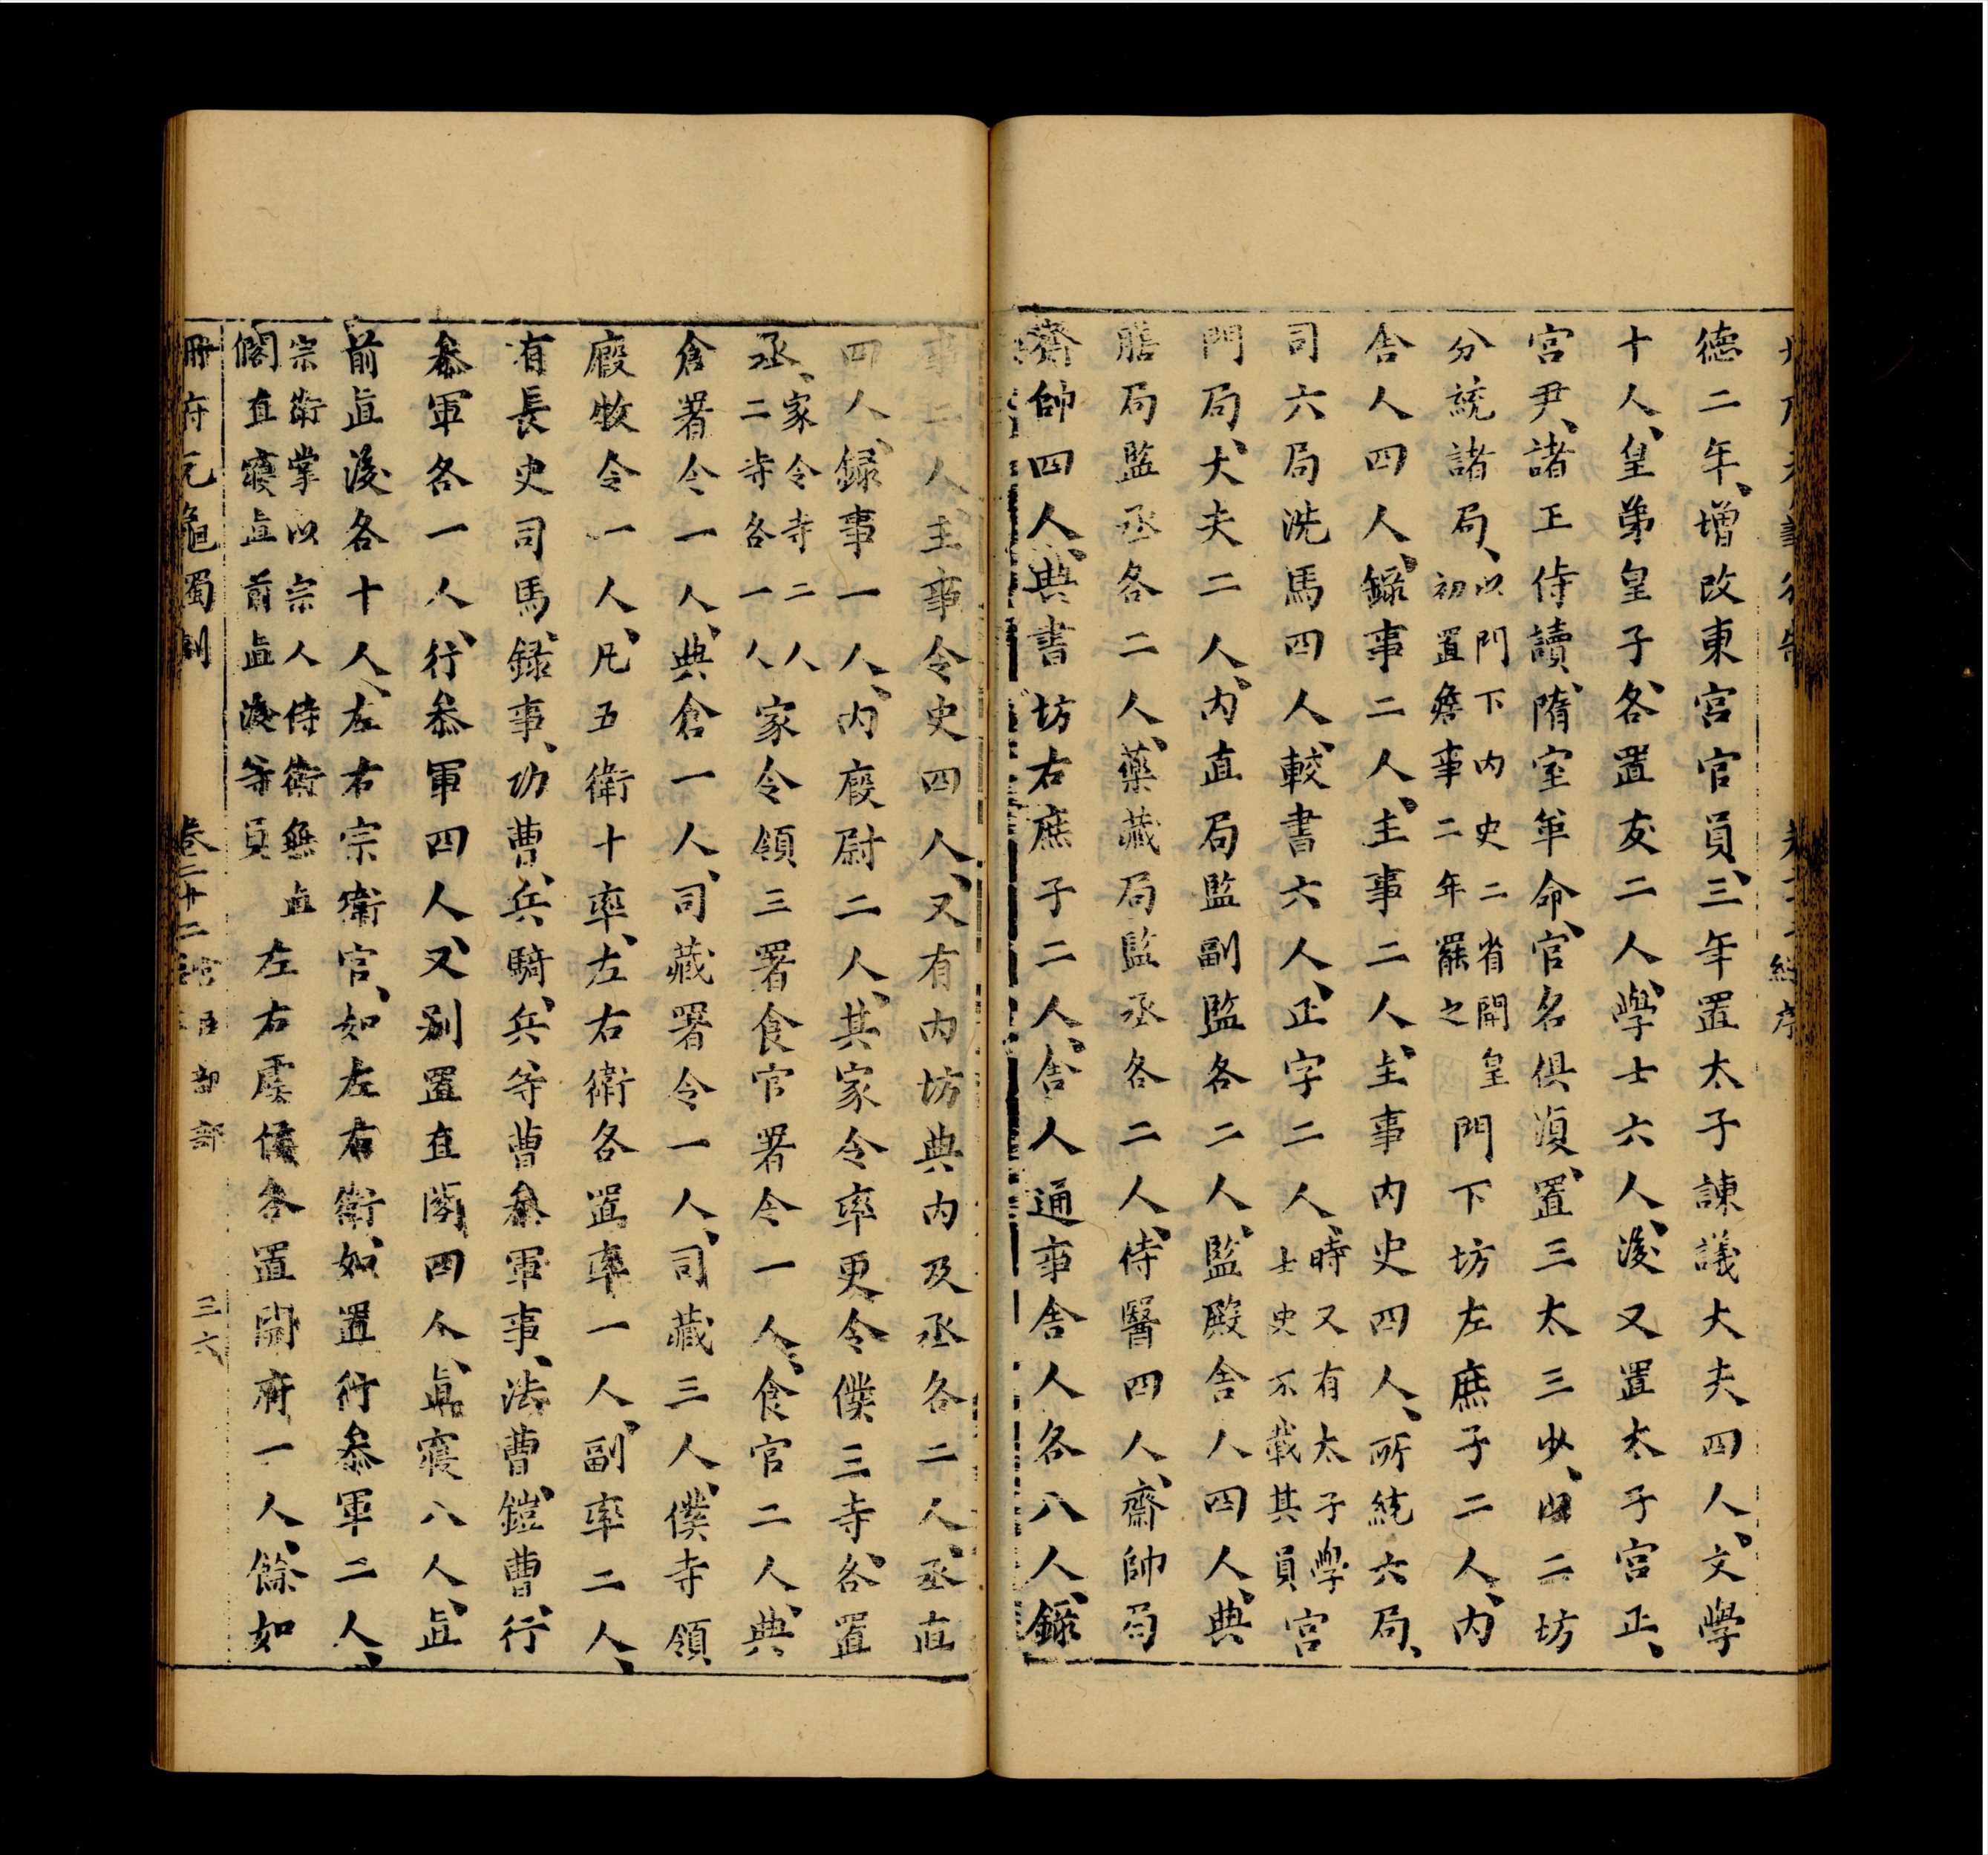 德二年、增改東宮官員、三年置太子諫議大夫四人、文學
十人、皇弟皇子各置友二人、學士六人、後又置太子宮正、
宮尹、諸王侍讀、隋室革命、官名俱湏、置三太三少、由二坊
分統諸局、以門下內史二省開皇初置詹事二年罷之門下坊左庶子二人、內
舎人四人、錄事二人、主事二人、主事內史四人、所統六局、
司六局洗馬四人、較書六人、正字二人、時又有太子學士史不載其員宮
門局、大夫二人、內直局監副監各二人、監殿舎人四人、典
膳局監丞各二人、藥藏局監丞各二人、侍醫四人、齋帥局
齋帥四人、典書坊右庶子二人、舎人通事舎人各八人、錄
事二人、主事令史四人、又有內坊典內及丞各二人、丞直
四人、録事一人、內廐尉二人、其家令率更令僕三寺、各置
丞、家令寺二人二寺各一人家令領三署食官署令一人、食官二人、典
倉署令一人、典倉一人、司藏署令一人、司藏三人、僕寺領
廐牧令一人、凡五衛十率、左右衛各置率一人、副率二人、
有長史司馬、録事、功曹、兵、騎兵、等曹叅軍事、法曹、鎧曹、行
叅軍各一人、行叅軍四人、又別置直閣四人、直寢八人、直
前直後各十人、左右宗衛官、如左右衛、如置行叅軍二人、
宗衛掌以宗人侍衛無直閣直寢直前直後等員左右虞候各置開府一人、餘如
冊府元龜 獨制 卷二十二 宮臣部 三六